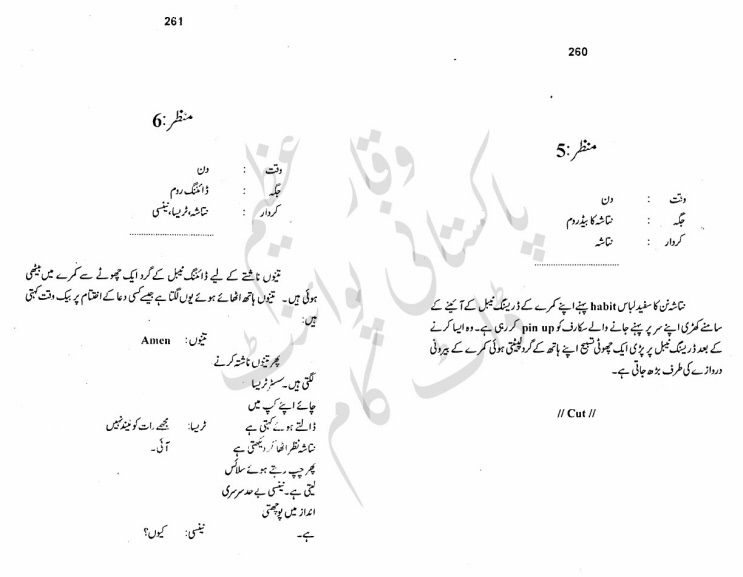 260
منظر:5
وقت : دن
جگہ : نتاشہ کا بیڈ روم
کردار : نتاشہ
نتاشہ نن کا سفید لباس habit پہنے اپنے کمرے کے ڈریسنگ ٹیبل کے آئینے کے
سامنے کھڑی اپنے سر پر پہنے جانے والے سکارف کو pin up کر رہی ہے۔ وہ ایسا کرنے
کے بعد ڈریسنگ ٹیبل پر پڑی ایک چھوٹی تسبیح اپنے ہاتھ کے گرد لپیٹتی ہوئی کمرے کے بیرونی
دروازے کی طرف بڑھ جاتی ہے۔
// Cut //
261
منظر:6
وقت : دن
جگہ : ڈائننگ روم
کردار : نتاشہ، ٹریسا، نینسی
تینوں ناشتے کے لیے ڈائننگ ٹیبل کے گرد ایک چھوٹے سے کمرے میں بیٹھی
ہوئی ہیں۔ تینوں ہاتھ اٹھائے ہوئے یوں لگتا ہے جیسے کسی دعا کے اختتام پر بیک وقت کہتی
ہیں:
تینوں: Amen
پھر تینوں ناشتہ کرنے
لگتی ہیں۔ سسٹر ٹریسا
چائے اپنے کپ میں
ڈالتے ہوئے کہتی ہے ٹریسا: مجھے رات کو نیند نہیں
نتاشہ نظر اٹھا کر دیکھتی ہے آئی۔
پھر چپ رہتے ہوئے سلائس
لیتی ہے۔ نینسی بے حد سرسری
انداز میں پوچھتی
ہے۔ نینسی: کیوں؟
پاکستانی پوائنٹ
وقار عظیم
ڈاٹ کام